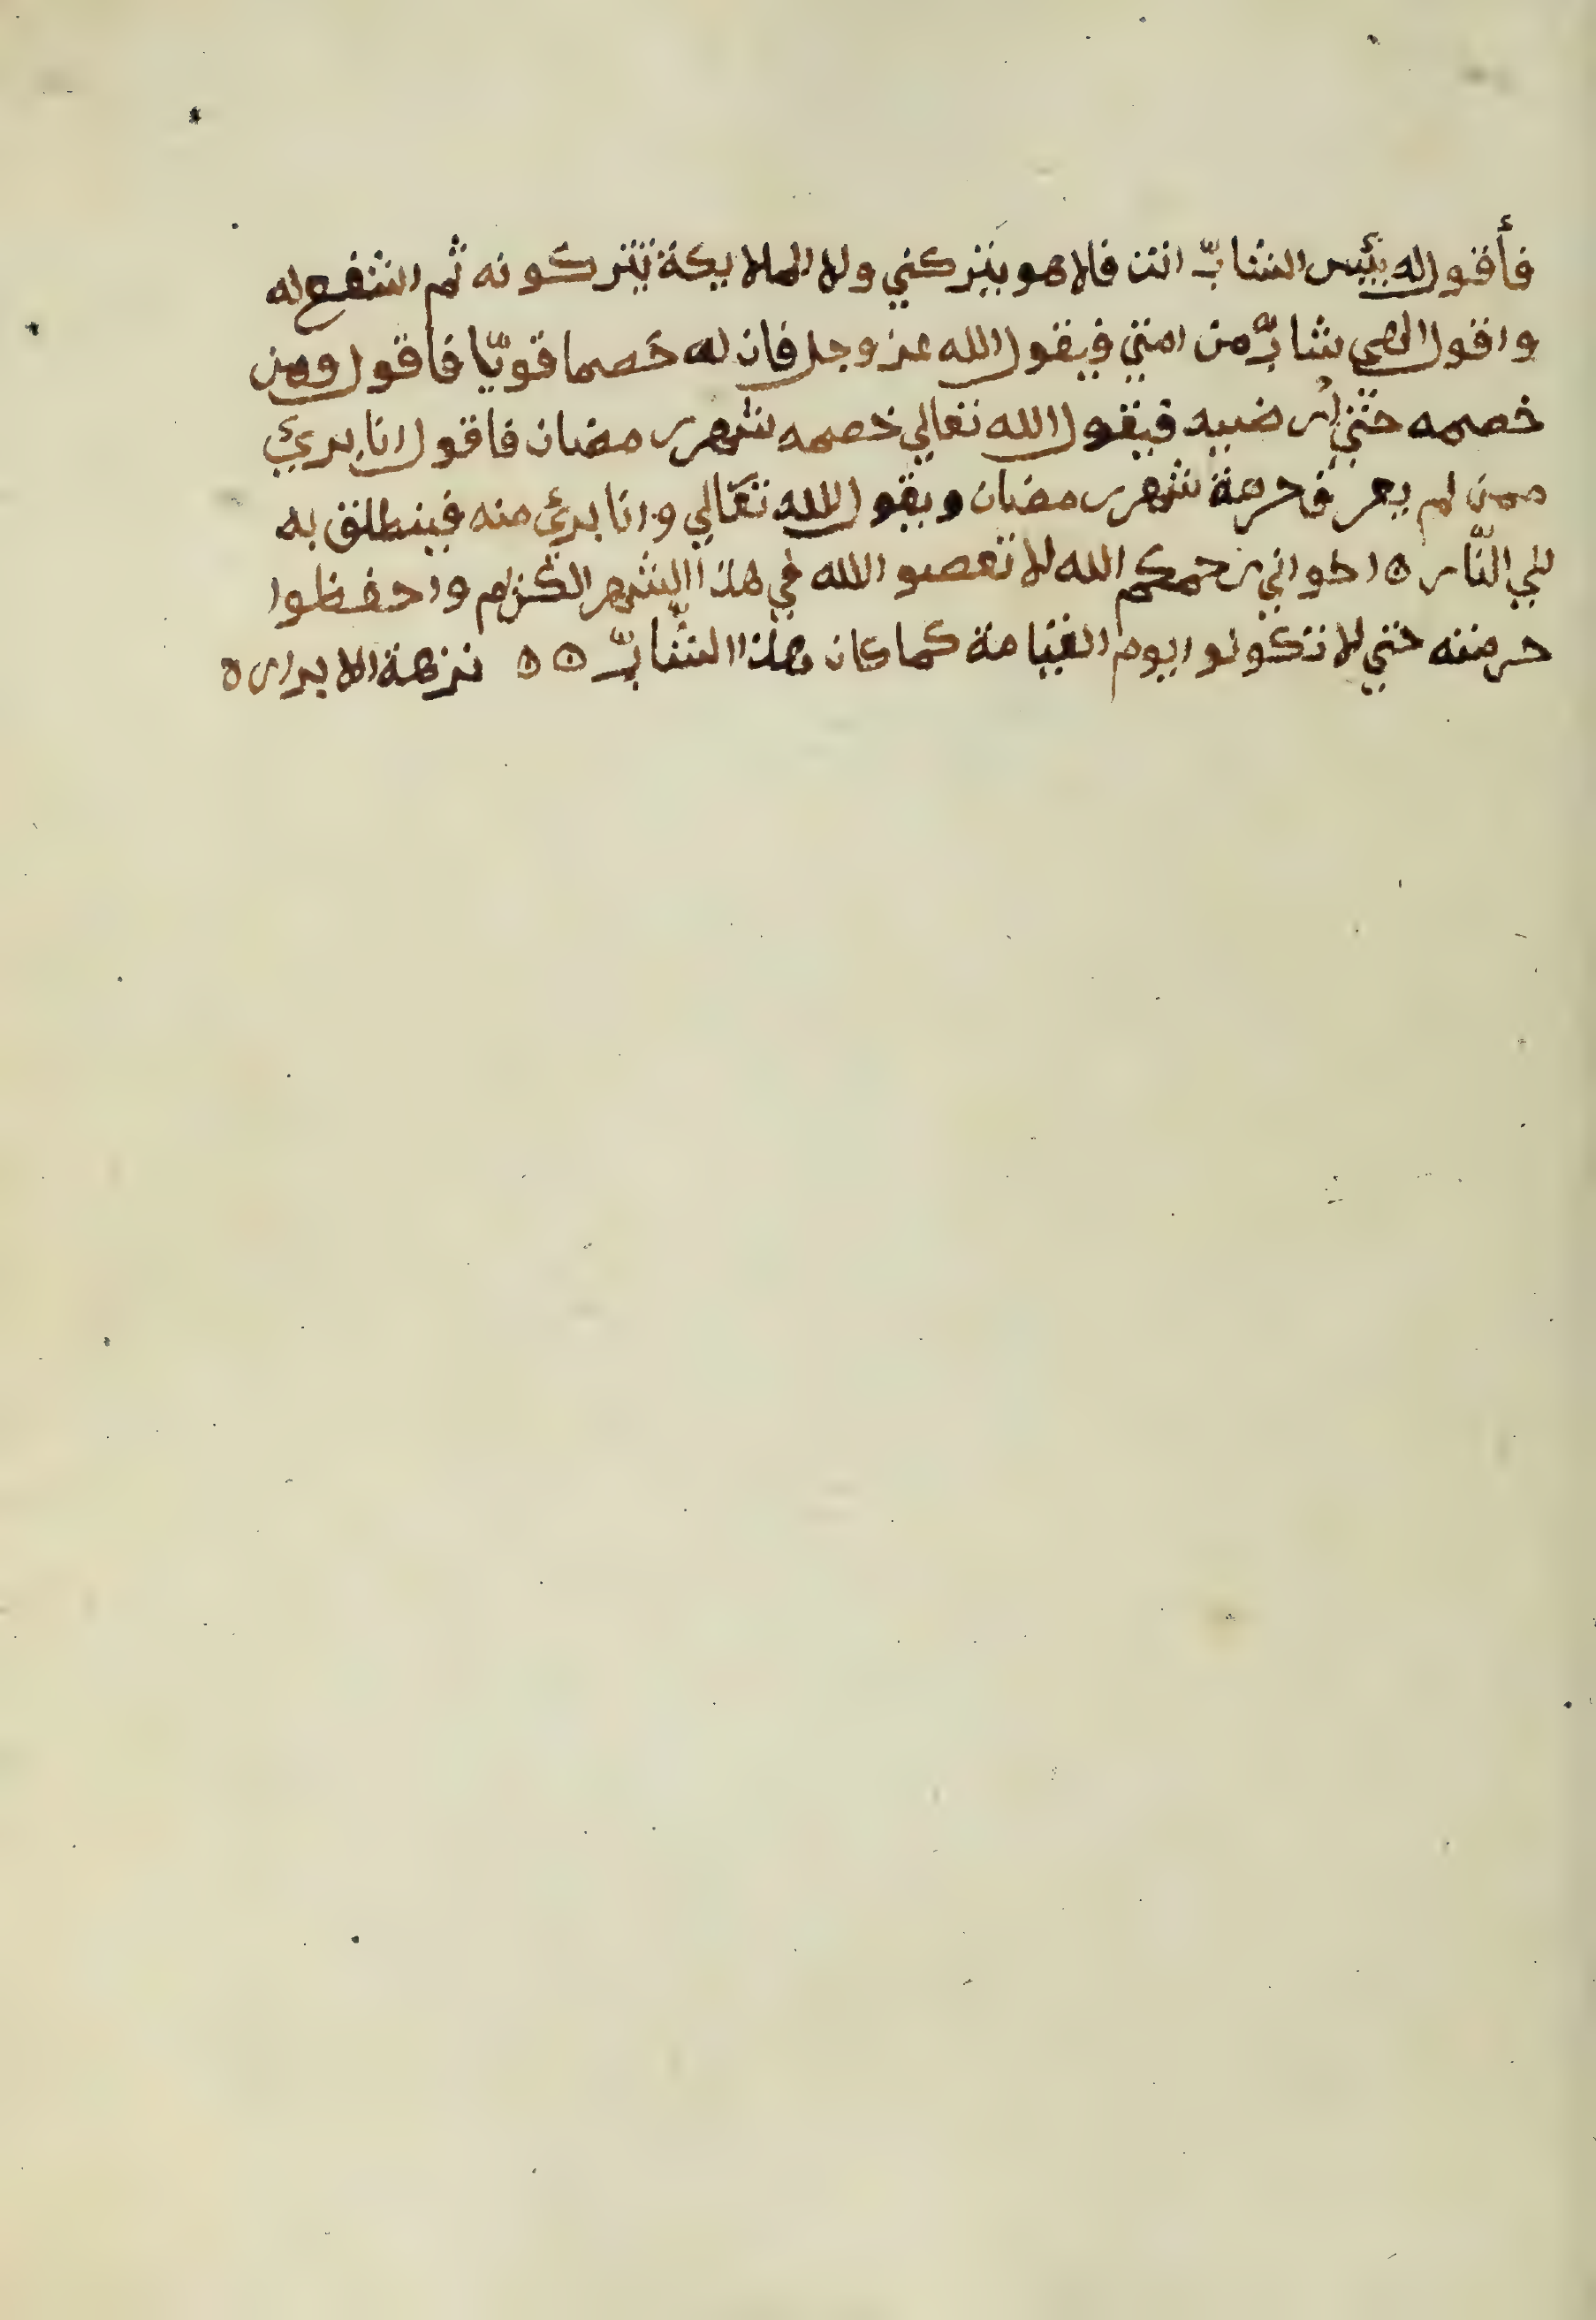 فأقول له بئيس الشابّ انت فلا هو يتركني ولا الملايكة يتركونه ثم اشفع له
واقول الهي شابّ من امتي فيقول الله عز وجل فان له خصما قويّا فاقول ومن
خصمه حتي ارضيه فيقول الله تعالي خصمه شهر رمضان فاقول انا بريئ
ممن لم يعرف حرمة شهر رمضان ويقول الله تعالي وانا برئ منه فينطلق به
الي النّار ه اخواني رحمكم الله لا تعصو الله في هذا الشهر الكريم واحفظوا
حرمته حتي لا تكونوا يوم القيامة كما كان هذا الشابّ ه ه نزهة الابرار ه